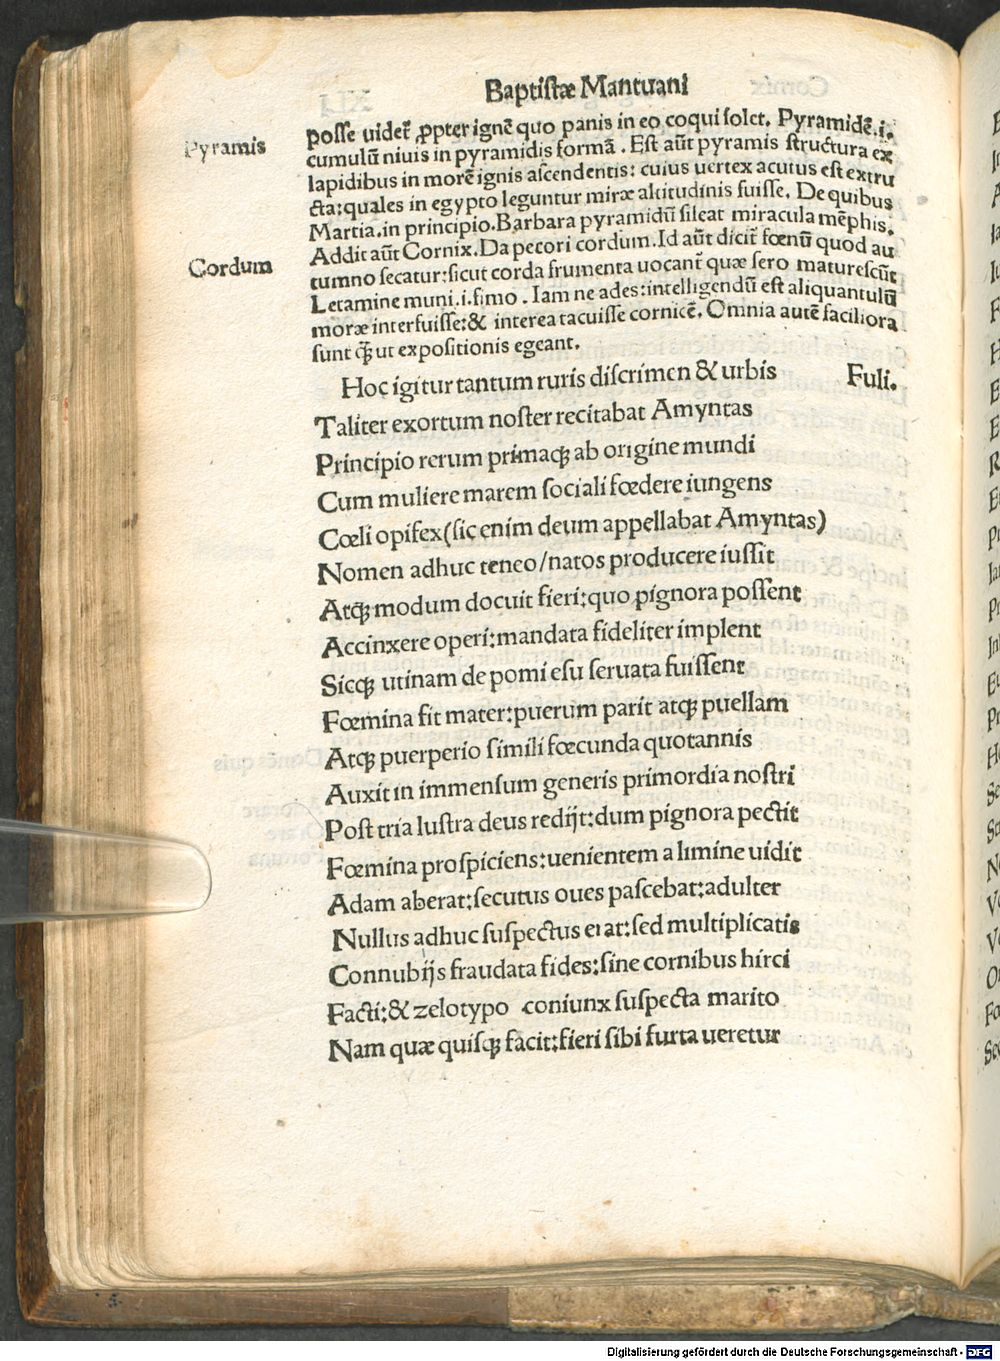 Baptistæ Mantuani
Pyramis
posse uider̃ ꝓpter ignẽ quo panis in eo coqui solet. Pyramidẽ .i.
cumulũ niuis in pyramidis formã. Est aũt pyramis structura ex
lapidibus in morẽ ignis ascendentis: cuius uertex acutus est extru
cta: quales in egypto leguntur miræ altitudinis fuisse. De quibus
Martia. in principio. Barbara pyramidũ sileat miracula mẽphis.
Cordum
Addit aũt Cornix. Da pecori cordum. Id aũt dicit̃ fœnũ quod au
tumno secatur: sicut corda frumenta uocant̃ quæ sero maturescũt
Letamine muni .i. fimo. Iam ne ades: intelligendũ est aliquantulũ
moræ interfuisse: & interea tacuisse cornicẽ. Omnia autẽ faciliora
sunt q̃ ut expositionis egeant.
Hoc igitur tantum ruris discrimen & urbis Fuli.
Taliter exortum noster recitabat Amyntas
Principio rerum primaqꝫ ab origine mundi
Cum muliere marem sociali fœdere iungens
Cœli opifex (sic enim deum appellabat Amyntas)
Nomen adhuc teneo/natos producere iussit
Atqꝫ modum docuit fieri: quo pignora possent
Accinxere operi: mandata fideliter implent
Sicqꝫ utinam de pomi esu seruata fuissent
Fœmina fit mater: puerum parit atqꝫ puellam
Atqꝫ puerperio simili fœcunda quotannis
Auxit in immensum generis primordia nostri
Post tria lustra deus redijt: dum pignora pectit
Fœmina prospiciens: uenientem a limine uidit
Adam aberat: secutus oues pascebat: adulter
Nullus adhuc suspectus erat: sed multiplicatis
Connubijs fraudata fides: sine cornibus hirci
Facti: & zelotypo coniunx suspecta marito
Nam quæ quisqꝫ facit: fieri sibi furta ueretur
Digitalisierung gefördert durch die Deutsche Forschungsgemeinschaft - DFG